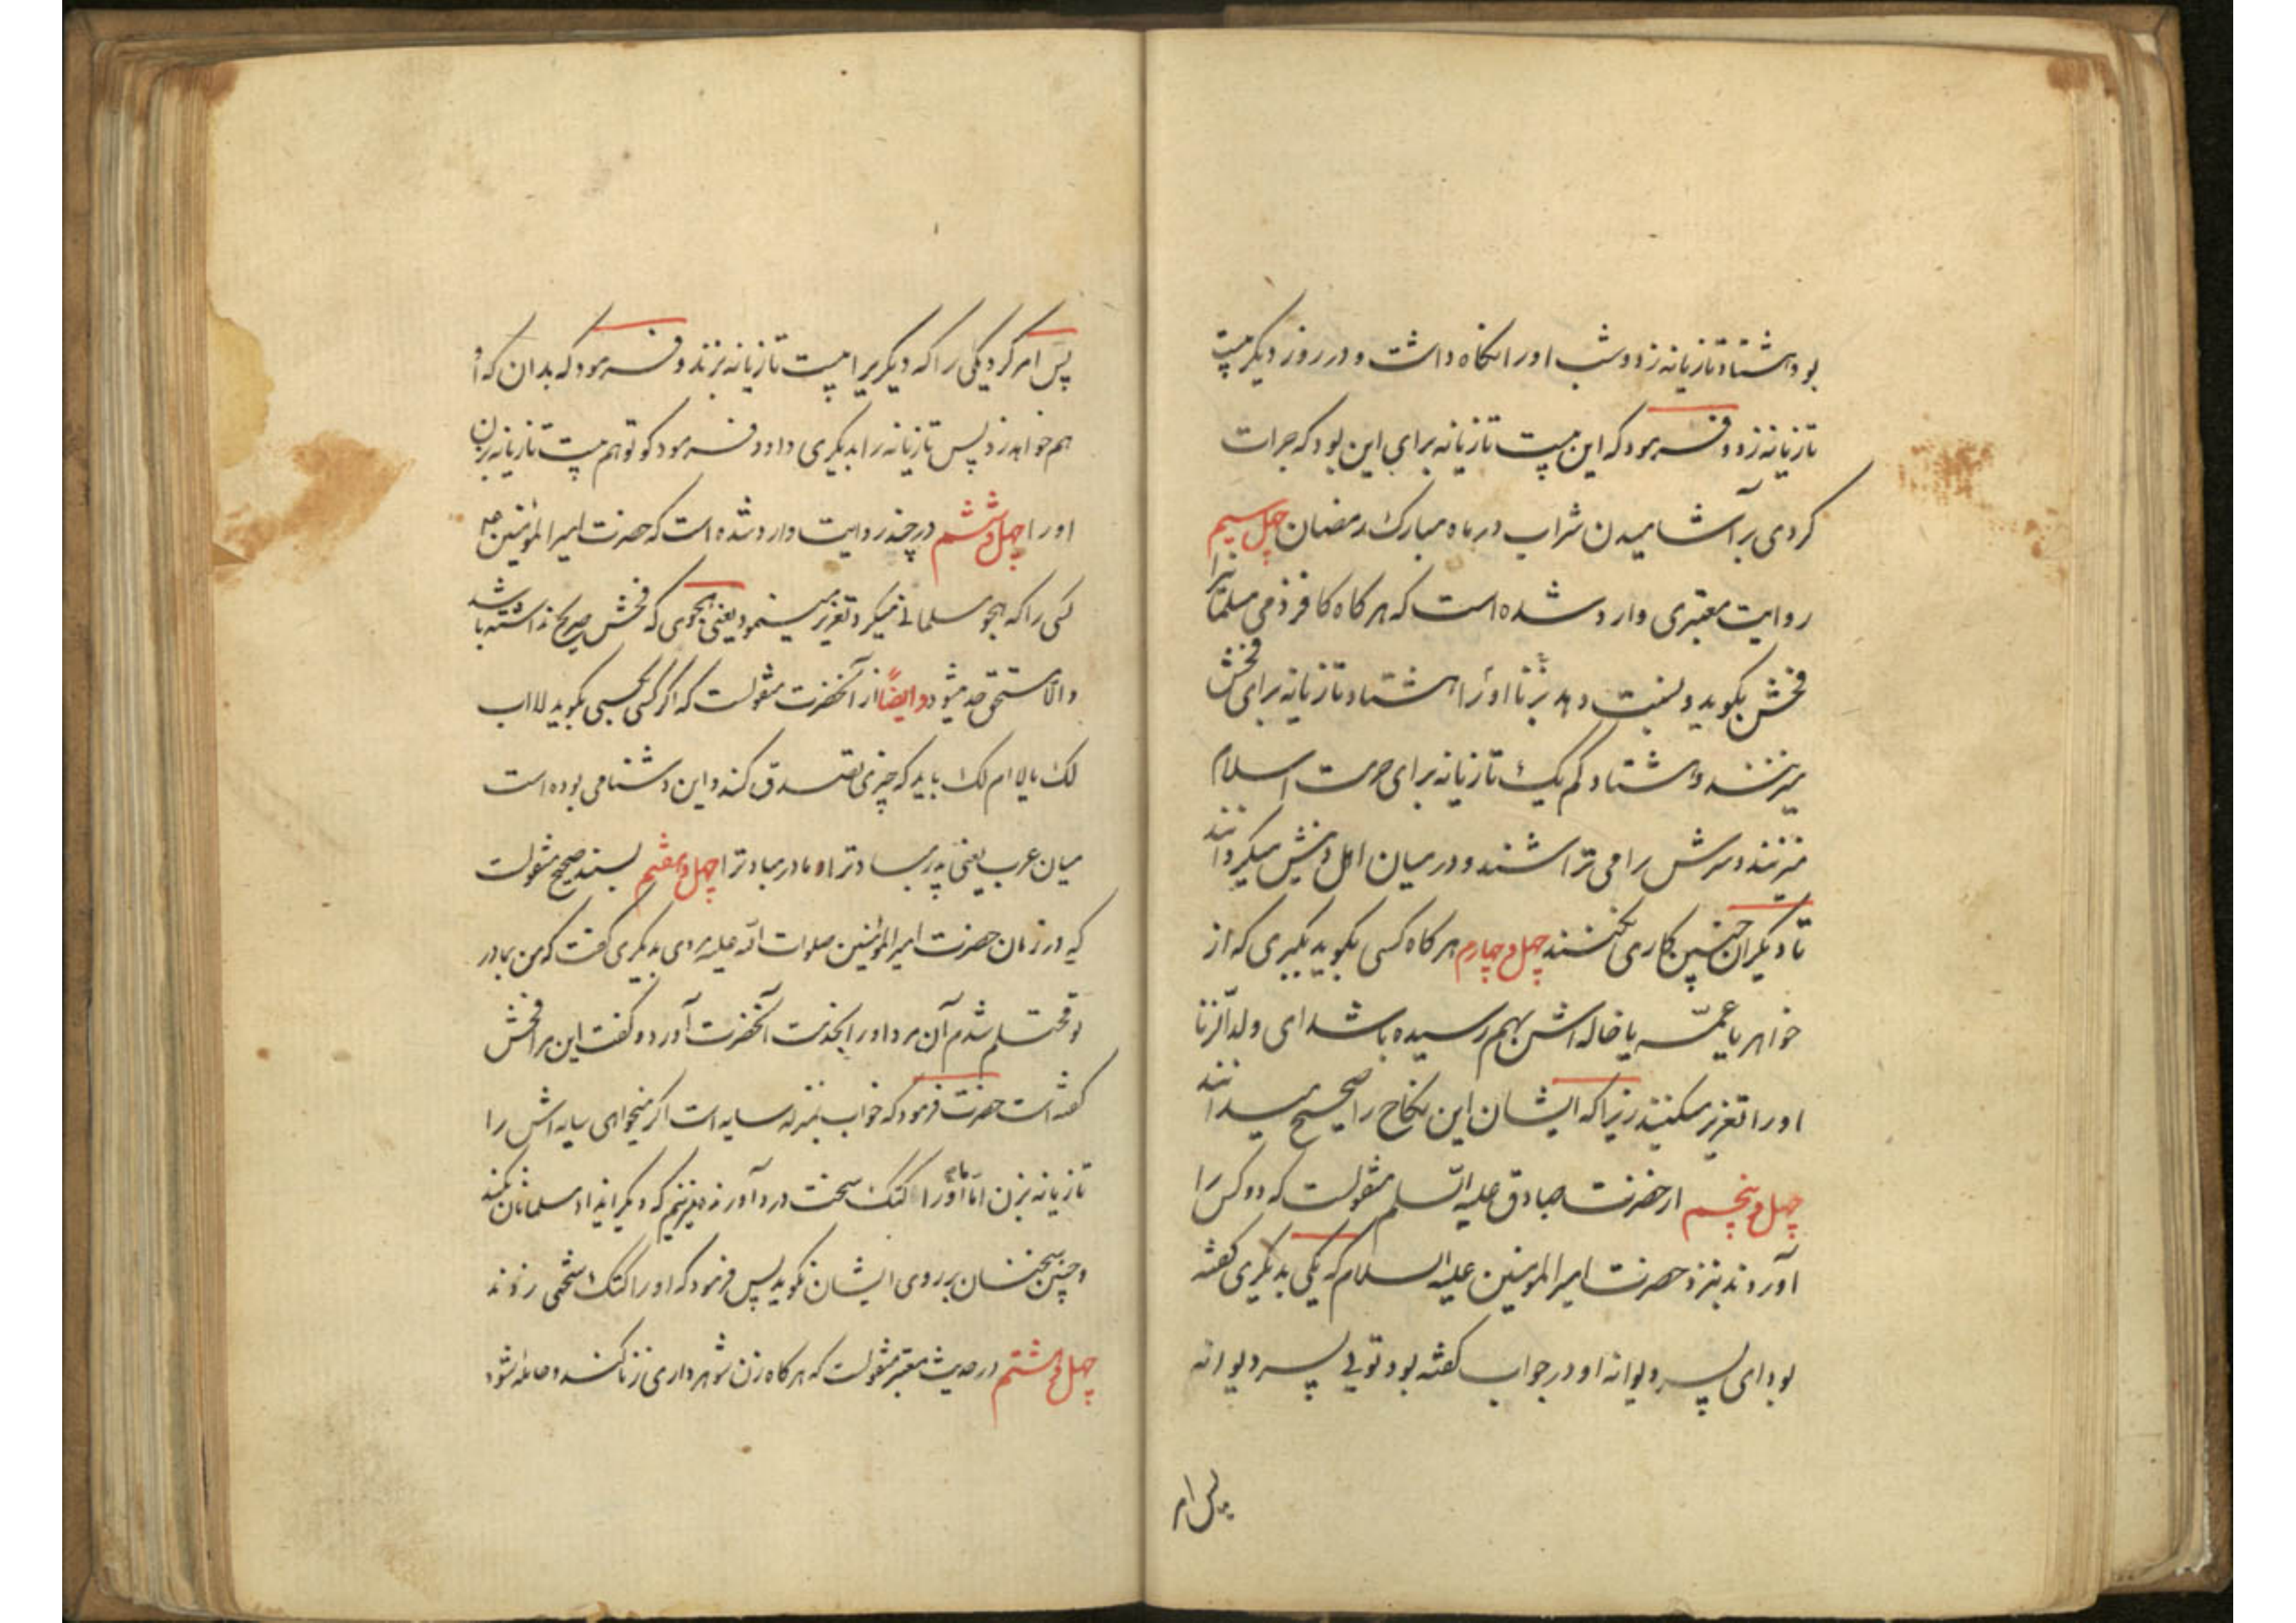 بود هشتاد تازیانه زد و شب او را نکاه داشت و در روز دیکر بیست
تازیانه زد و فرمود که این بیست تازیانه برای این بود که جرات
کردی بر آشامیدن شراب در ماه مبارک رمضان چهل سیم
روایت معتبری وارد شده است که هر کاه کافر ذمی مسلمانرا
فحش بکوید و نسبت دهد بزنا او را هشتاد تازیانه برای فحش
میزنند و هشتاد کم یک تازیانه برای حرمت اسلام
میزنند و سرش را می تراشند و در میان اهل دینش میکردانند
تا دیکران چنین کاری نکنند چهل و چهارم هر کاه کسی بکوید بکبری که از
خواهر یا عمه یا خاله اش بهم رسیده باشد ای ولد الزنا
او را تعزیر میکنند زیرا که ایشان این نکاح را صحیح میدانند
چهل و پنجم از حضرت صادق علیه السلم منقولست که دو کس را
آوردند بنزد حضرت امیر المومنین علیه السلام که یکی بدیکری کفته
بود ای پسر دیوانه او در جواب کفته بود تویی پسر دیوانه
پس امر
پس امر کرد یکی را که دیکریرا بیست تازیانه بزند و فرمود که بدان که او
هم خواهد زد پس تازیانه را بدیکری داد و فرمود که تو هم بیست تازیانه بزن
او را چهل و ششم در چند روایت وارد شده است که حضرت امیر المؤمنین ع
کسی را که هجو مسلمانی میکرد تعزیر مینمود یعنی هجوی که فحش صریح نداشته باشد
والا مستحق حد میشود وایضًا از آنحضرت منقولست که اکر کسی بکسی بکوید لا اب
لک یا لا ام لک باید که چیزی تصدق کند و این دشنامی بوده است
میان عرب یعنی پدر مبادترا و مادر مبادترا چهل و هفتم بسند صحیح منقولست
که در زمان حضرت امیر المؤمنین صلوات الله علیه مردی بدیکری کفت که من بمادر
تو محتلم شدم آن مرد او را بخدمت آنحضرت آورد و کفت این مرا فحش
کفته است حضرت فرمود که خواب بمنزله سایه است اکر میخواهی سایه اش را
تازیانه بزن اما او را کتک سخت درد آورنده میزنیم که دیکر ایذاء مسلمانان نکند
و چنین سخنان بر روی ایشان نکوید پس فرمود که او را کتک سختی زدند
چهل و هشتم در حدیث معتبر منقولست که هر کاه زن شوهرداری زنا کند و حامله شود